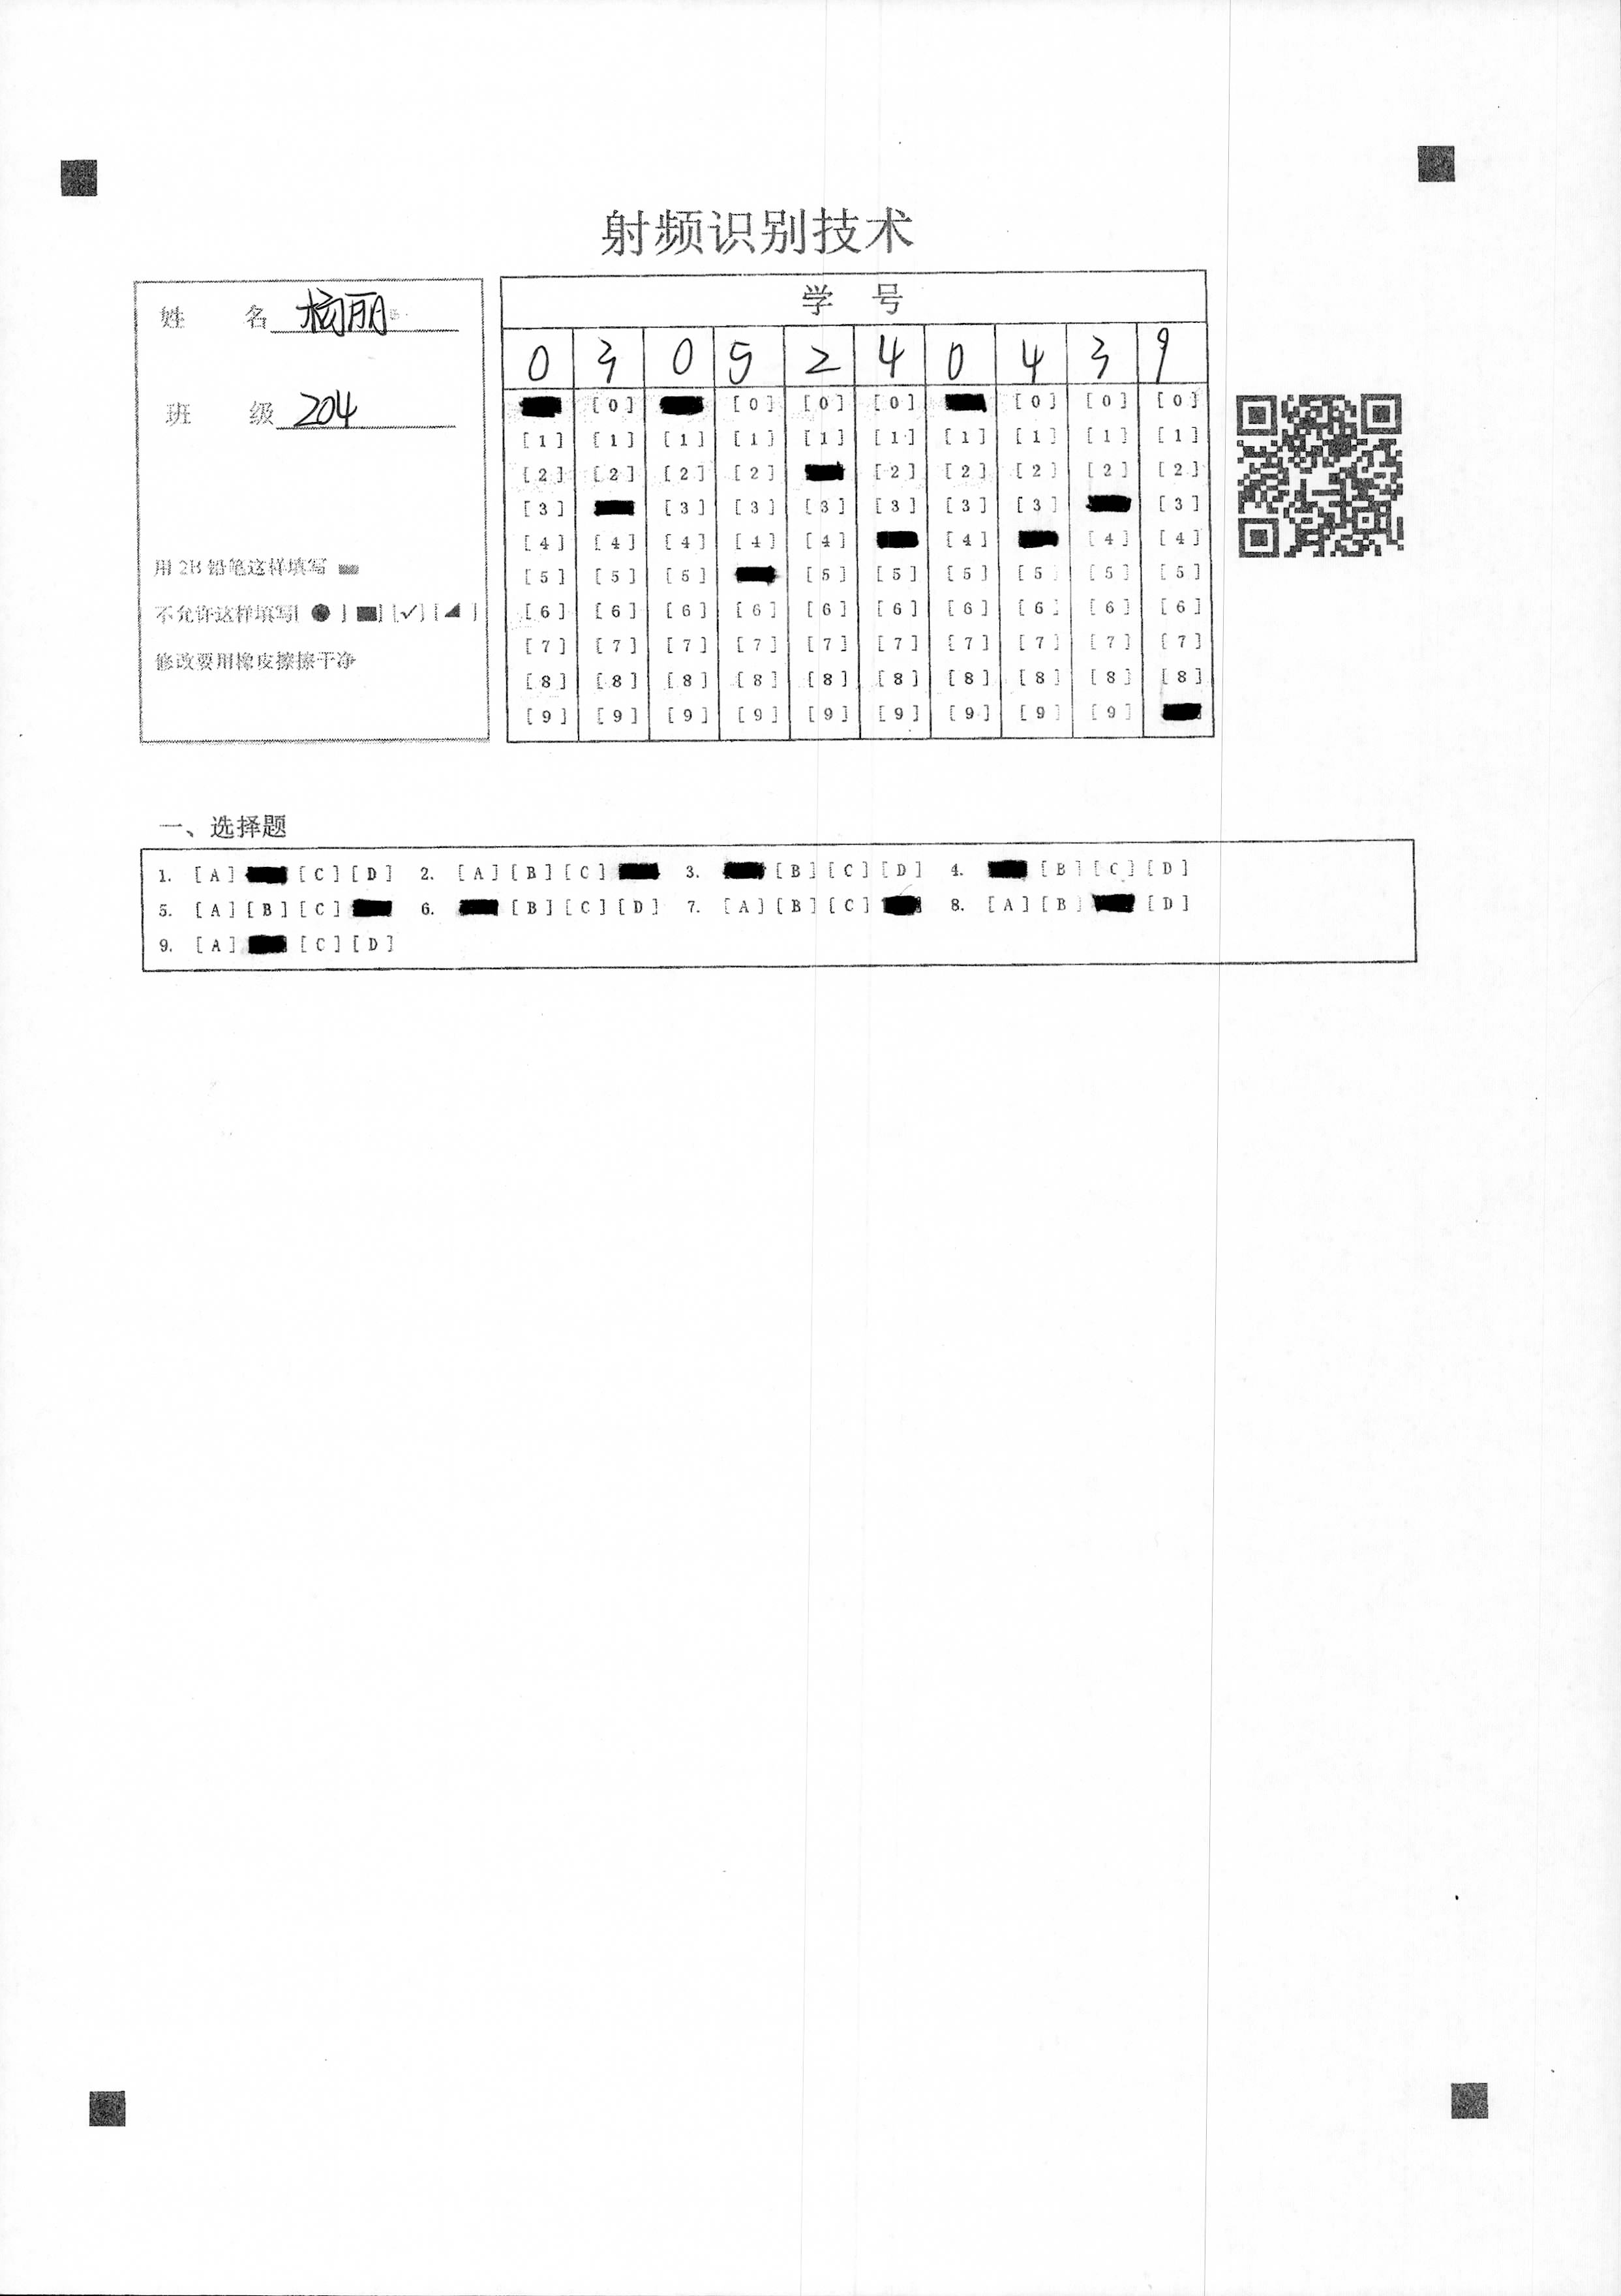 射频识别技术
姓 名 杨丽
班 级 204
用 2B 铅笔这样填写
不允许这样填写[ ● ] [■] [✓] [◢ ]
修改要用橡皮擦擦干净
学 号
0 3 0 5 2 4 0 4 3 9
[0] [0] [0] [0] [0] [0] [0]
[1] [1] [1] [1] [1] [1] [1] [1] [1] [1]
[2] [2] [2] [2] [2] [2] [2] [2] [2]
[3] [3] [3] [3] [3] [3] [3] [3]
[4] [4] [4] [4] [4] [4] [4] [4]
[5] [5] [5] [5] [5] [5] [5] [5] [5]
[6] [6] [6] [6] [6] [6] [6] [6] [6] [6]
[7] [7] [7] [7] [7] [7] [7] [7] [7] [7]
[8] [8] [8] [8] [8] [8] [8] [8] [8] [8]
[9] [9] [9] [9] [9] [9] [9] [9] [9]
一、选择题
1. [A] [C] [D] 2. [A] [B] [C] 3. [B] [C] [D] 4. [B] [C] [D]
5. [A] [B] [C] 6. [B] [C] [D] 7. [A] [B] [C] 8. [A] [B] [D]
9. [A] [C] [D]